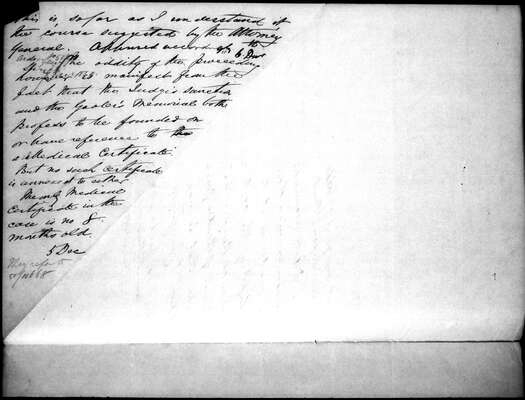 This is, so far as I understand it
the course suggested by the Attorney
General.
The oddity of the preceding
manifest from the
fact that the Judge's Sanction
and the Gaoler's Memorial both
profess to be founded on
or have reference to
a Medical Certificate.
But no such Certificate
is annexed to either
Medical
Certificate in the
case is no 8
months old.
5 Dec
May refer to